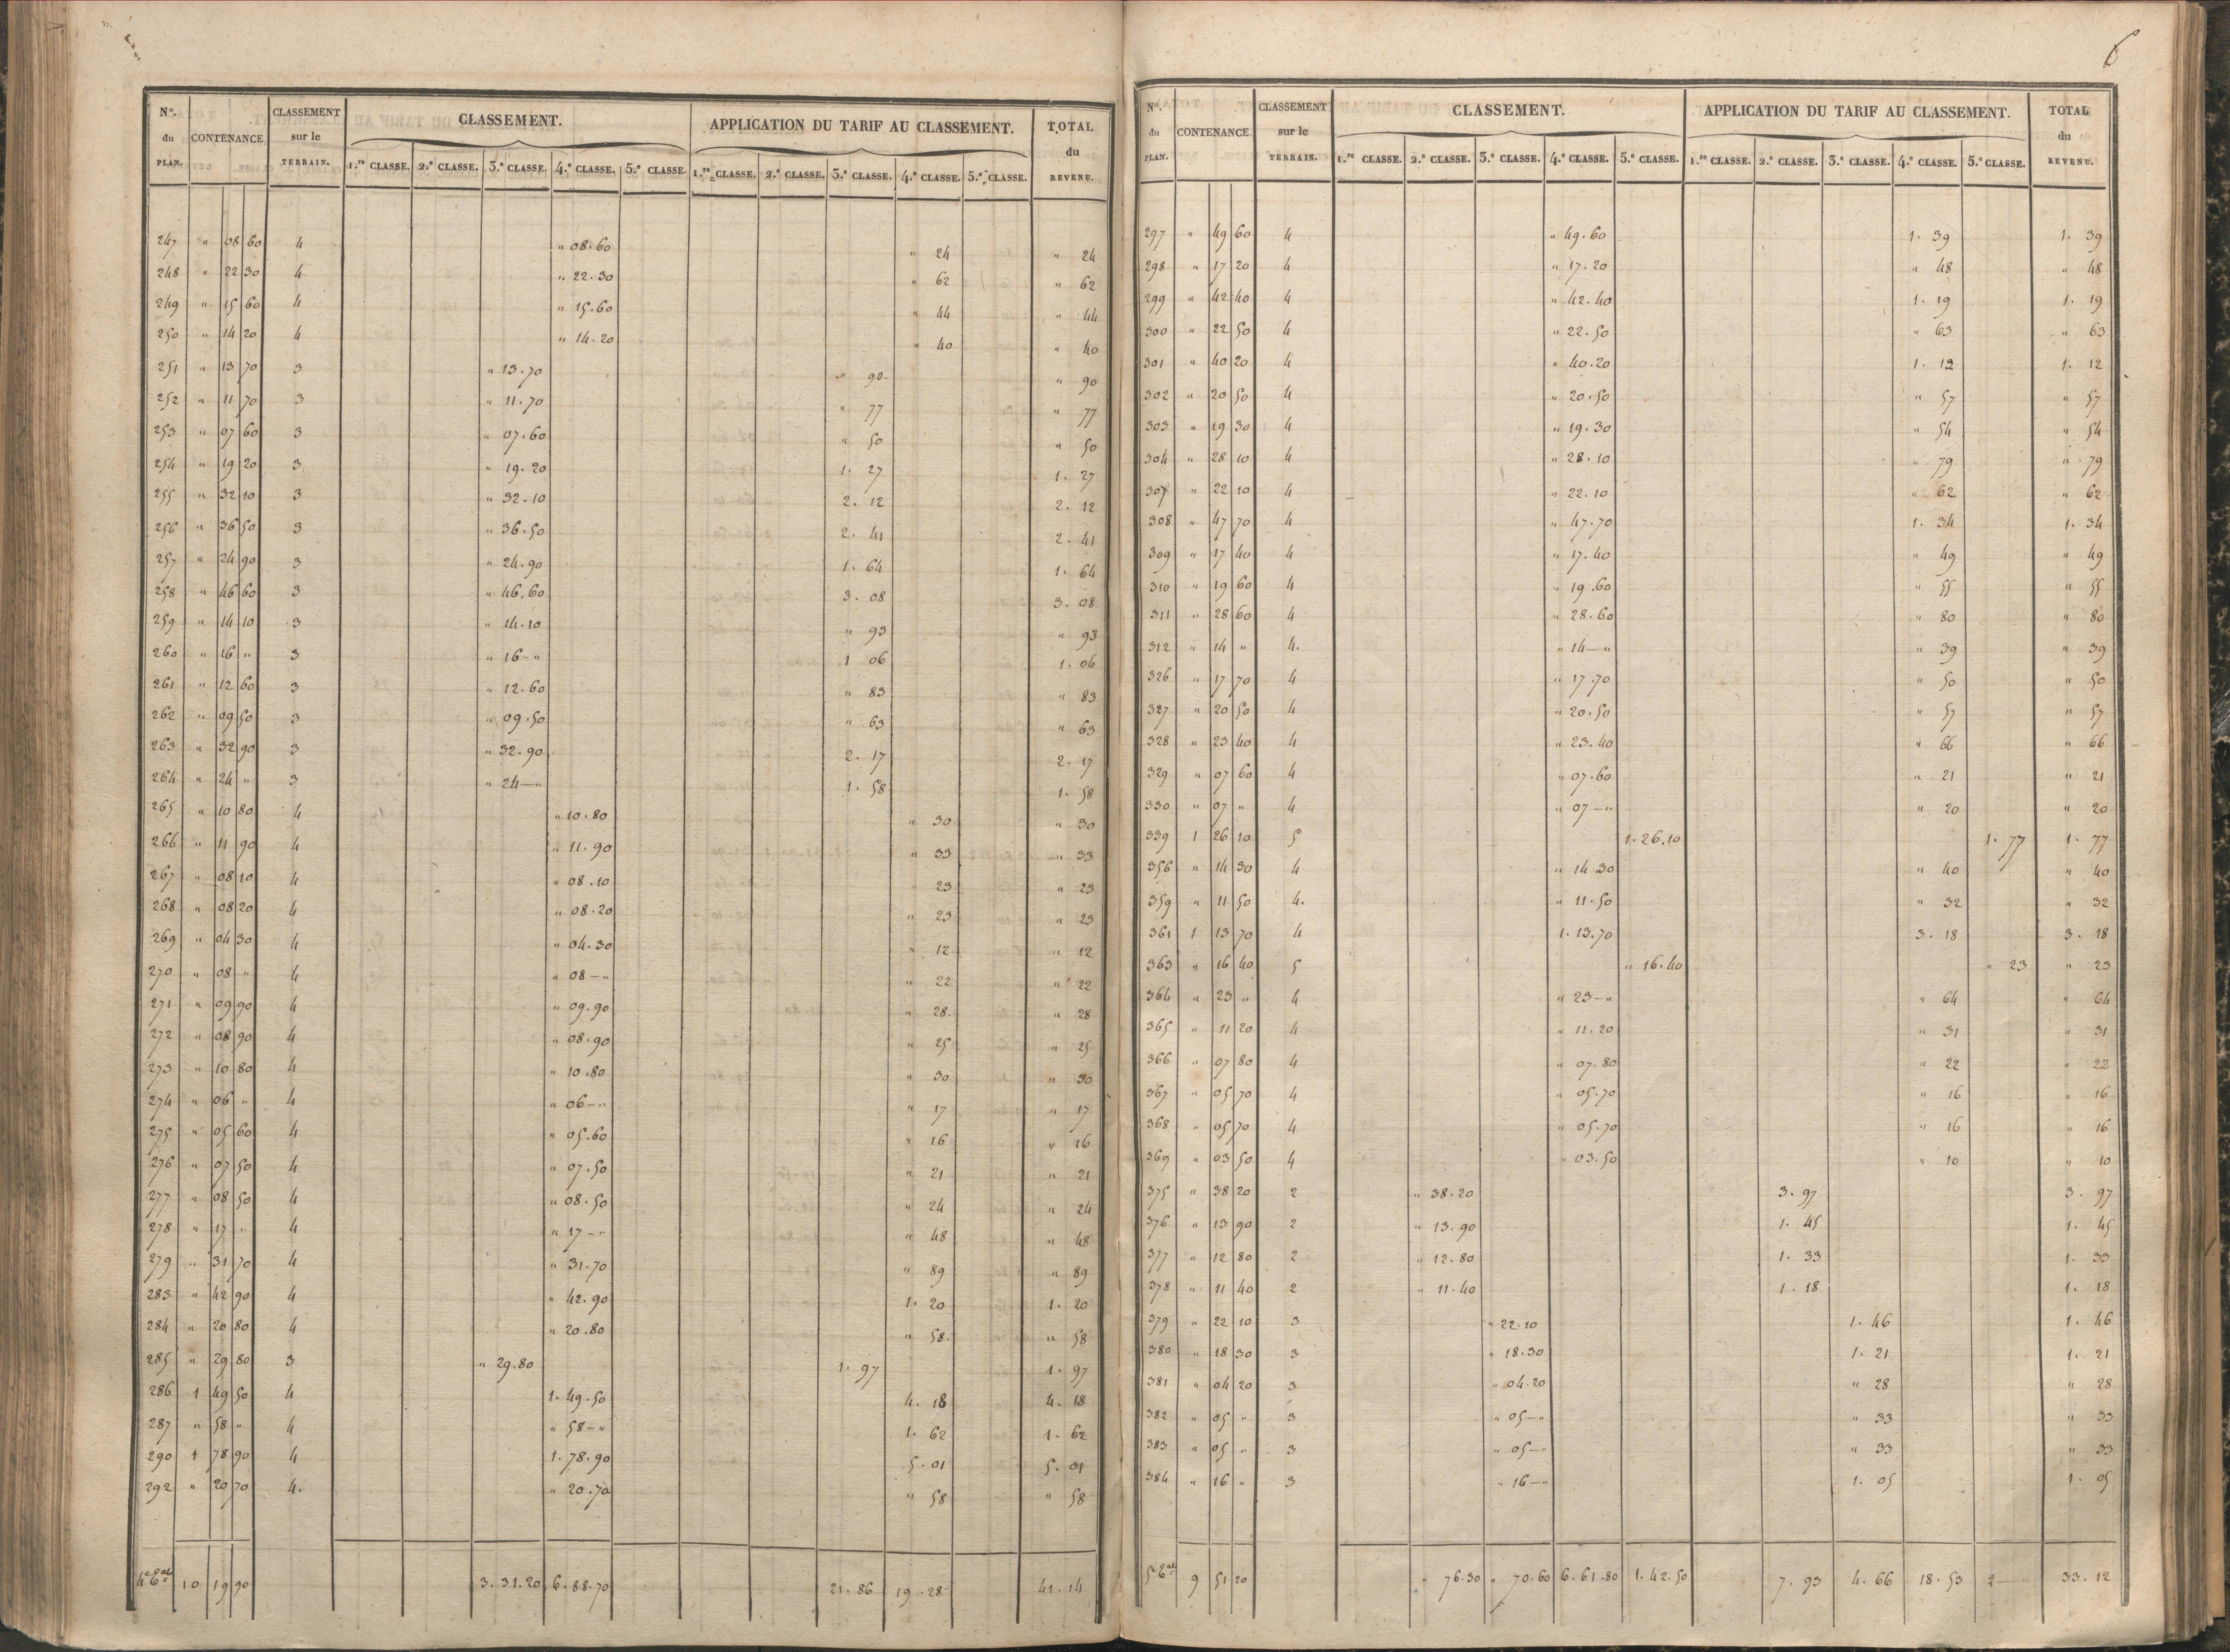 N.º du PLAN. CONTENANCE CLASSEMENT sur le TERRAIN. CLASSEMENT. APPLICATION DU TARIF AU CLASSEMENT. TOTAL du REVENU.
1.re CLASSE. 2.e CLASSE. 3.e CLASSE. 4.e CLASSE. 5.e CLASSE. 1.re CLASSE. 2.e CLASSE. 3.e CLASSE. 4.e CLASSE. 5.e CLASSE.
247 " 08 60 4 " 08.60 " 24 " 24
248 " 22 30 4 " 22.30 " 62 " 62
249 " 15 60 4 " 15.60 " 44 " 44
250 " 14 20 4 " 14.20 " 40 " 40
251 " 13 70 3 " 13.70 " 90. " 90
252 " 11 70 3 " 11.70 " 77 " 77
253 " 07 60 3 " 07.60 " 50 " 50
254 " 19 20 3 " 19.20 1. 27 1. 27
255 " 32 10 3 " 32.10 2. 12 2. 12
256 " 36 50 3 " 36.50 2. 41 2. 41
257 " 24 90 3 " 24.90 1. 64 1. 64
258 " 46 60 3 " 46.60 3. 08 3. 08
259 " 14 10 3 " 14.10 " 93 " 93
260 " 16 " 3 " 16-" 1 06 1. 06
261 " 12 60 3 " 12.60 " 83 " 83
262 " 09 50 3 " 09.50 " 63 " 63
263 " 32 90 3 " 32.90 2. 17 2. 17
264 " 24 " 3 " 24-" 1. 58 1. 58
265 " 10 80 4 " 10.80 " 30 " 30
266 " 11 90 4 " 11.90 " 33 " 33
267 " 08 10 4 " 08.10 " 23 " 23
268 " 08 20 4 " 08.20 " 23 " 23
269 " 04 30 4 " 04.30 " 12 " 12
270 " 08 " 4 " 08-" " 22 " 22
271 " 09 90 4 " 09.90 " 28. " 28
272 " 08 90 4 " 08.90 " 25 " 25
273 " 10 80 4 " 10.80 " 30 " 30
274 " 06 " 4 " 06-" " 17 " 17
275 " 05 60 4 " 05.60 " 16 " 16
276 " 07 50 4 " 07.50 " 21 " 21
277 " 08 50 4 " 08.50 " 24 " 24
278 " 17 " 4 " 17-" " 48 " 48
279 " 31 70 4 " 31.70 " 89 " 89
283 " 42 90 4 " 42.90 1. 20 1. 20
284 " 20 80 4 " 20.80 " 58. " 58
285 " 29 80 3 " 29.80 1. 97 1. 97
286 1 49 50 4 1.49.50 4. 18 4. 18
287 " 58 " 4 " 58-" 1. 62 1. 62
290 1 78 90 4 1.78.90 5. 01 5. 01
292 " 20 70 4. " 20.70 " 58 " 58
10 19 90 3.31.20 6.88.70 21.86 19.28 41.14
6
N.º du PLAN. CONTENANCE. CLASSEMENT sur le TERRAIN. CLASSEMENT. APPLICATION DU TARIF AU CLASSEMENT. TOTAL du REVENU.
1.re CLASSE. 2.e CLASSE. 3.e CLASSE. 4.e CLASSE. 5.e CLASSE. 1.re CLASSE. 2.e CLASSE. 3.e CLASSE. 4.e CLASSE. 5.e CLASSE.
297 " 49 60 4 " 49.60 1. 39 1. 39
298 " 17 20 4 " 17.20 " 48 " 48
299 " 42 40 4 " 42.40 1. 19 1. 19
300 " 22 50 4 " 22.50 " 63 " 63
301 " 40 20 4 " 40.20 1. 12 1. 12
302 " 20 50 4 " 20.50 " 57 " 57
303 " 19 30 4 " 19.30 " 54 " 54
304 " 28 10 4 " 28.10 " 79 " 79
307 " 22 10 4 " 22.10 " 62 " 62
308 " 47 70 4 " 47.70 1. 34 1. 34
309 " 17 40 4 " 17.40 " 49 " 49
310 " 19 60 4 " 19.60 " 55 " 55
311 " 28 60 4 " 28.60 " 80 " 80
312 " 14 " 4. " 14-" " 39 " 39
326 " 17 70 4 " 17.70 " 50 " 50
327 " 20 50 4 " 20.50 " 57 " 57
328 " 23 40 4 " 23.40 " 66 " 66
329 " 07 60 4 " 07.60 " 21 " 21
330 " 07 " 4 " 07-" " 20 " 20
339 1 26 10 5 1.26.10 1. 77 1. 77
356 " 14 30 4 " 14 30 " 40 " 40
359 " 11 50 4. " 11.50 " 32 " 32
361 1 13 70 4 1.13.70 3. 18 3. 18
363 " 16 40 5 " 16.40 " 23 " 23
364 " 23 " 4 " 23-" " 64 " 64
365 " 11 20 4 " 11.20 " 31 " 31
366 " 07 80 4 " 07.80 " 22 " 22
367 " 05 70 4 " 05.70 " 16 " 16
368 " 05 70 4 " 05.70 " 16 " 16
369 " 03 50 4 " 03.50 " 10 " 10
375 " 38 20 2 " 38.20 3. 97 3. 97
376 " 13 90 2 " 13.90 1. 45 1. 45
377 " 12 80 2 " 12.80 1. 33 1. 33
378 " 11 40 2 " 11.40 1. 18 1. 18
379 " 22 10 3 " 22.10 1. 46 1. 46
380 " 18 30 3 " 18.30 1. 21 1. 21
381 " 04 20 3 " 04.20 " 28 " 28
382 " 05 " 3 " 05-" " 33 " 33
383 " 05 " 3 " 05-" " 33 " 33
384 " 16 " 3 " 16-" 1. 05 1. 05
9 51 20 " 76.30 " 70.60 6.61.80 1.42.50 7.93 4.66 18.53 2- 33.12